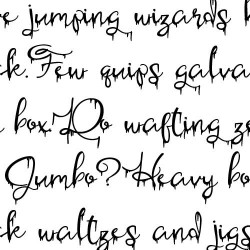 e jumping wizards b
ck. Few quips galva
box. Do wafting ze
Jumbo? Heavy bo
ck waltzes and jigs